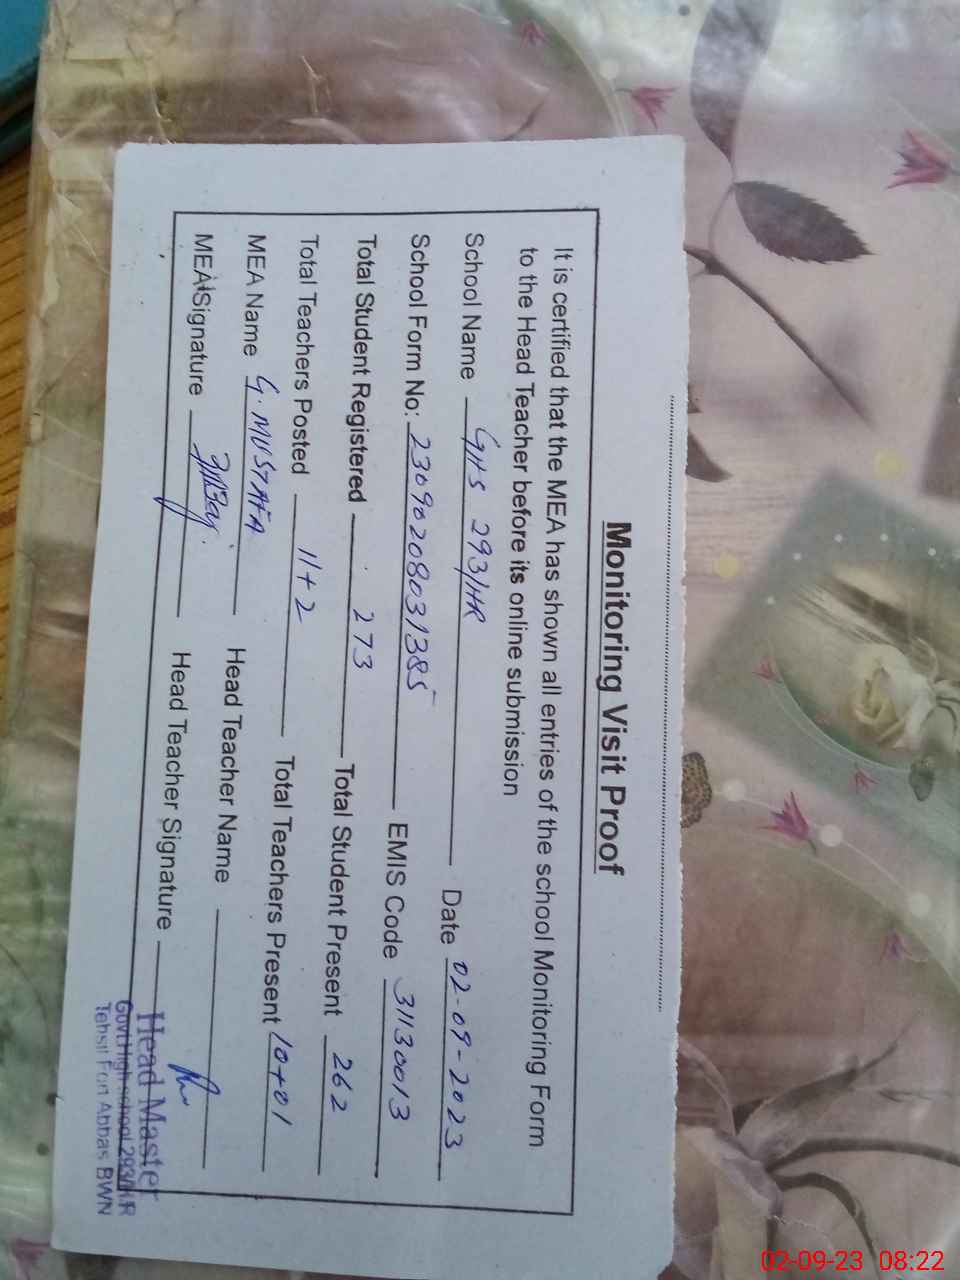 Monitoring Visit Proof
It is certified that the MEA has shown all entries of the school Monitoring Form
to the Head Teacher before its online submission
School Name GHS 293/HR Date 02-09-2023
School Form No: 23090208031385 EMIS Code 31130013
Total Student Registered 273 Total Student Present 262
Total Teachers Posted 11+2 Total Teachers Present 10+01
MEA Name G. MUSTAFA Head Teacher Name
MEA Signature Head Teacher Signature
Head Master
Govt High school 293/HR
Tehsil Fort Abbas BWN
02-09-23 08:22